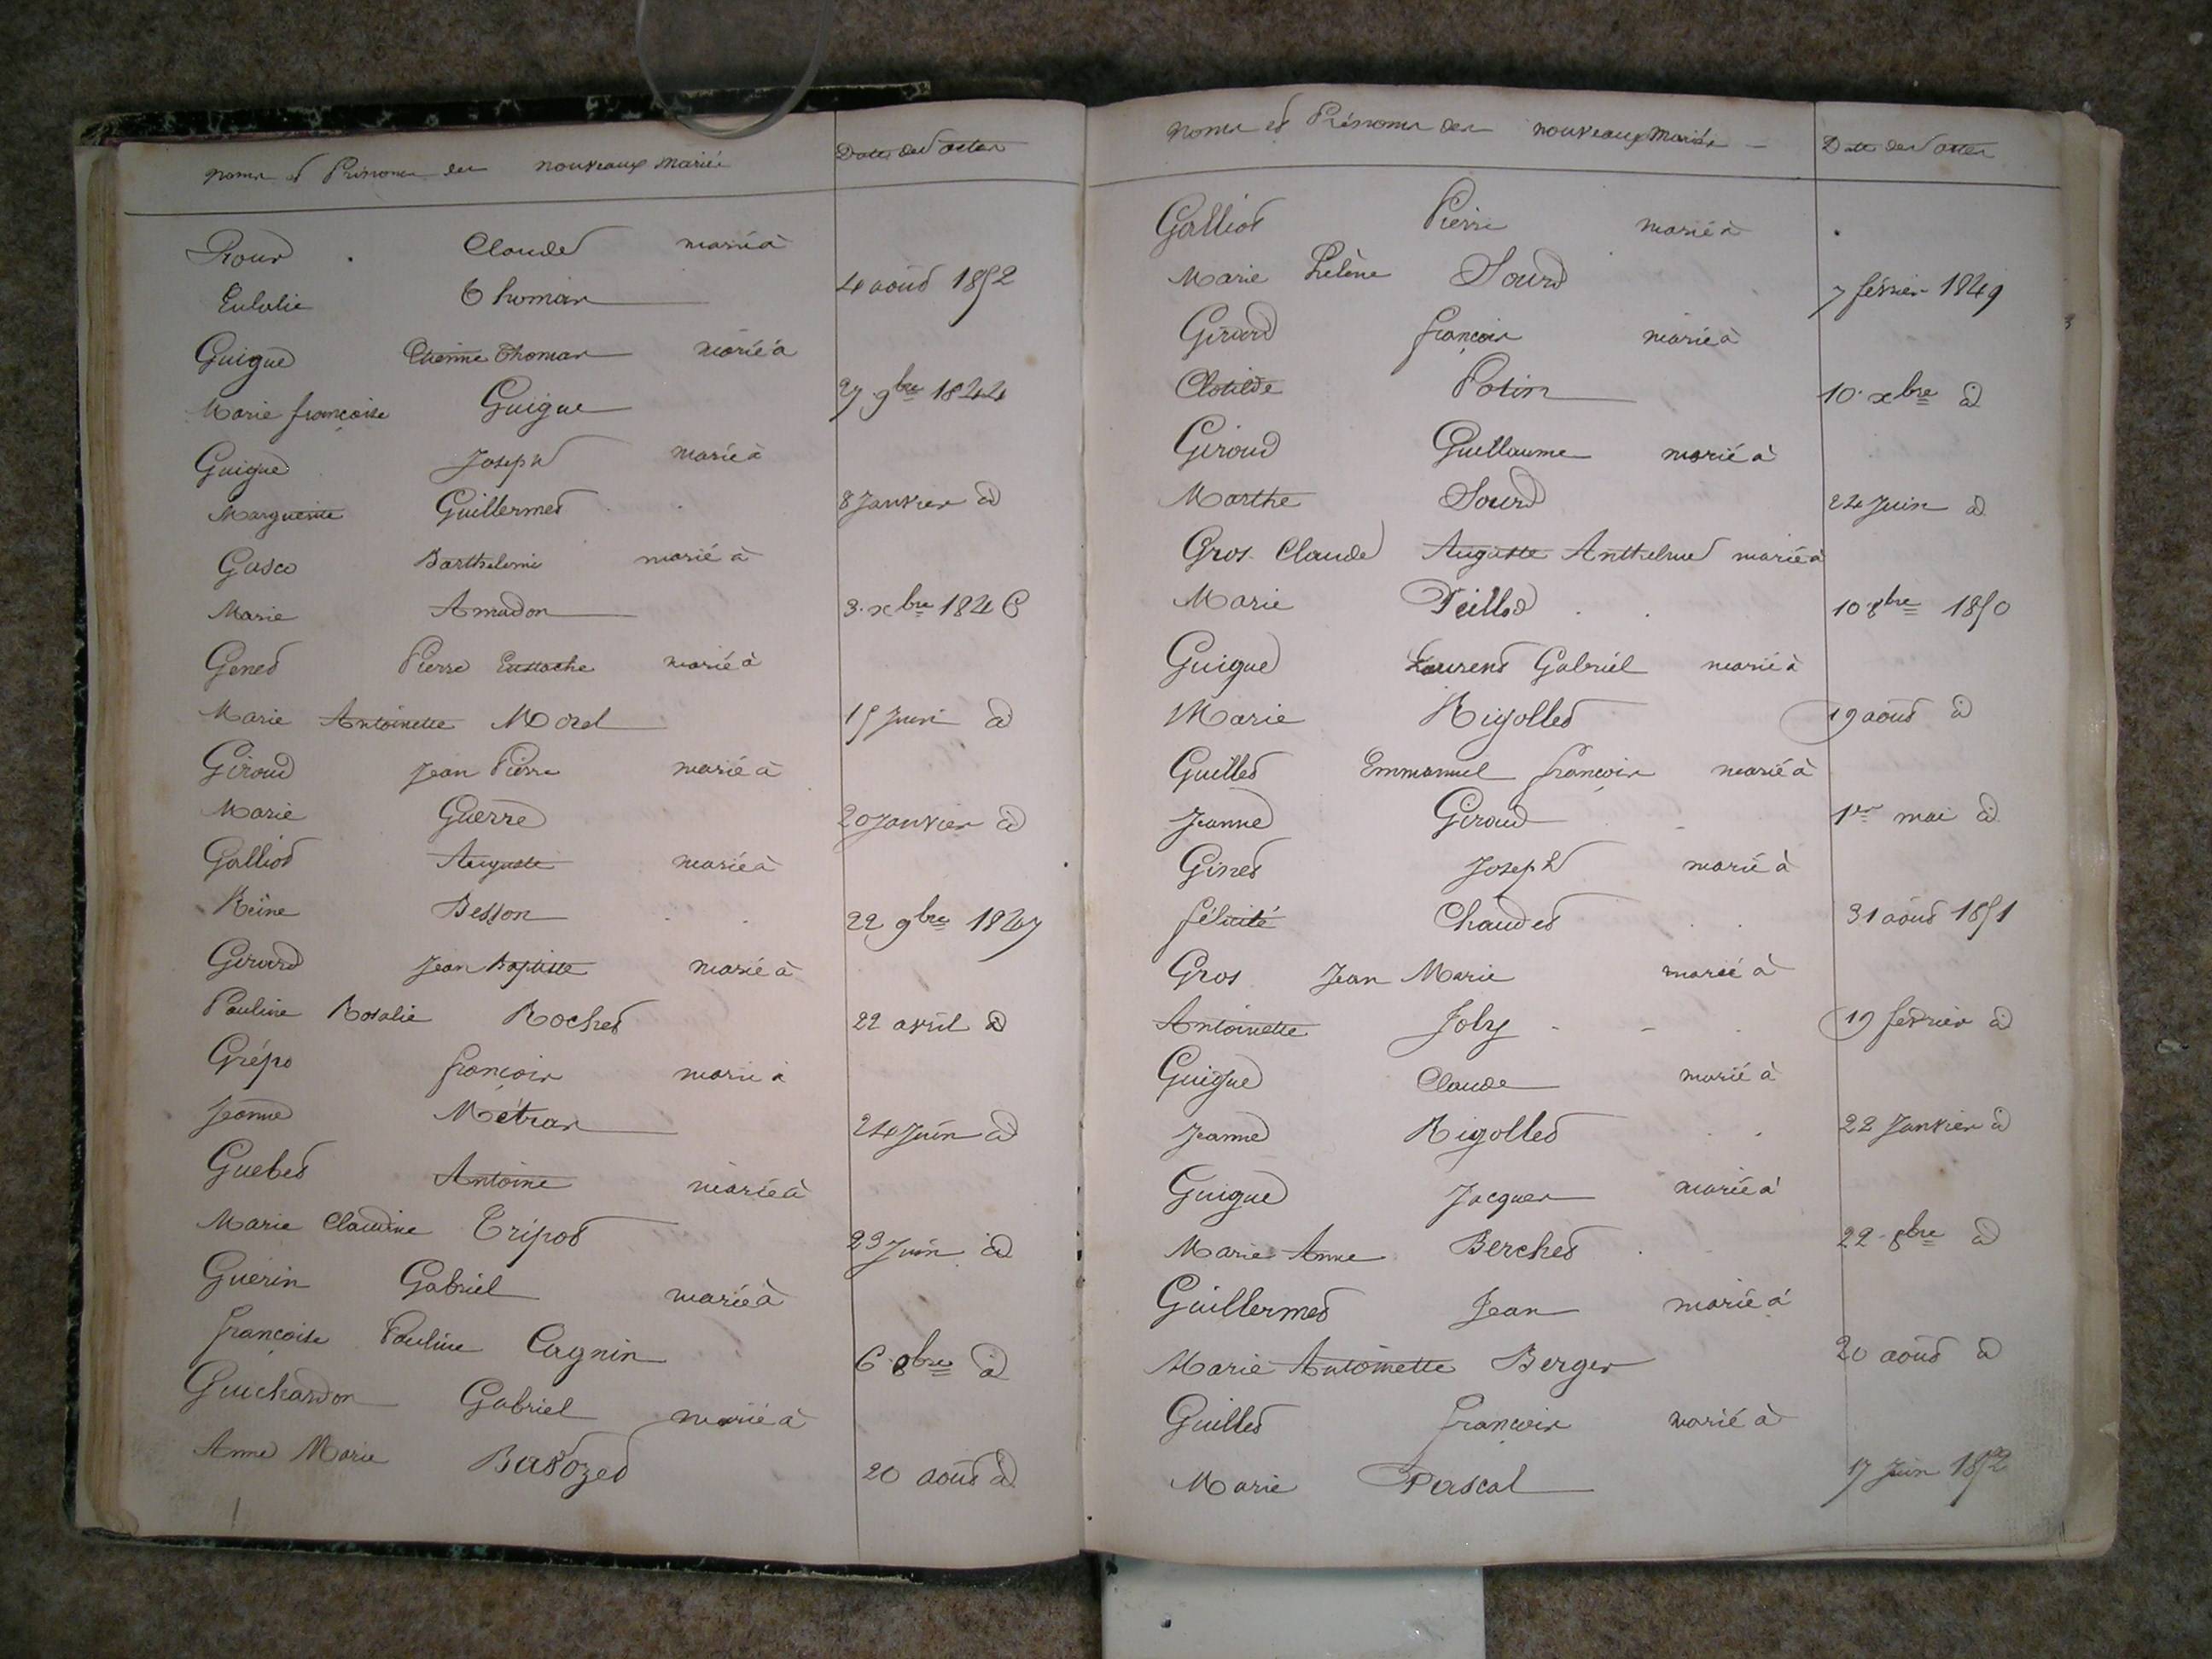 Noms et Prénoms des nouveaux mariés Date des actes
Claude marié à
Eulalie Thomas 4 août 1852
Guigue Etienne Thomas marié à
Marie françoise Guigue 27 9bre 1844
Guigue Joseph marié à
Marguerite Guillermet 8 Janvier d
Gasco Barthelemi marié à
Marie Amadon 3 xbre 1846
Genet Pierre Eustache marié à
Marie Antoinette Morel 15 Juin d
Giroud Jean Pierre marié à
Marie Guerre 20 Janvier d
Galliot Auguste marié à
Reine Besson 22 9bre 1847
Girard Jean Baptiste marié à
Pauline Rosalie Rochet 22 avril d
Grépo françois marié à
Jeanne Métras 24 Juin d
Guebet Antoine marié à
Marie Claudine Tripot 23 Juin d
Guerin Gabriel marié à
françoise Pauline Cagnin 6 8bre d
Guichardon Gabriel marié à
Anne Marie 20 août d
Noms et Prénoms des nouveaux Mariés Date des actes
Galliot Pierre marié à
Marie Hélène Sourd 7 février 1849
Girard françois marié à
Clotilde Potin 10 xbre d
Giroud Guillaume marié à
Marthe Sourd 24 Juin d
Gros Claude Auguste Anthelme marié à
Marie 10 8bre 1850
Guigue Laurent Gabriel marié à
Marie Rigollet 19 août d
Guillet Emmanuel françois marié à
Jeanne Giroud 1er mai d
Ginet Joseph marié à
félicité Chaudet 31 août 1851
Gros Jean Marie marié à
Antoinette Joly 19 février d
Guigue Claude marié à
Jeanne Rigollet 22 Janvier d
Guigue Jacques marié à
Marie Anne Berchet 22 8bre d
Guillermet Jean marié à
Marie Antoinette Berger 20 août d
Guillet françois marié à
Marie Pascal 17 Juin 1852